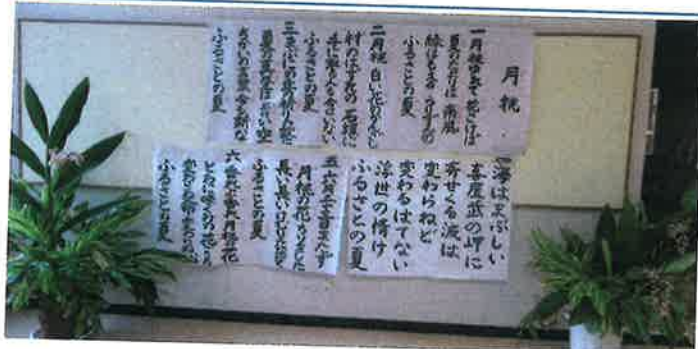 月桃
一月桃ゆれて花さけば
夏のたよりは 南風
緑はもえる うりずんの
ふるさとの夏
二月桃白い花のかんざし
村のはずれの 石垣に
手に取る人も今はいない
ふるさとの夏
の丘の祈りの歌に
夏の真昼は青い空
ちかいの言葉今も新たな
ふるさとの夏
海はまぶしい
喜屋武の岬に
寄せくる波は
変わらねど
変わるはてない
浮世の情け
ふるさとの夏
五六月二十三日またず
月桃の花ちりました
長い長い
ふるさとの夏
六 月桃の花
ふるさとの夏